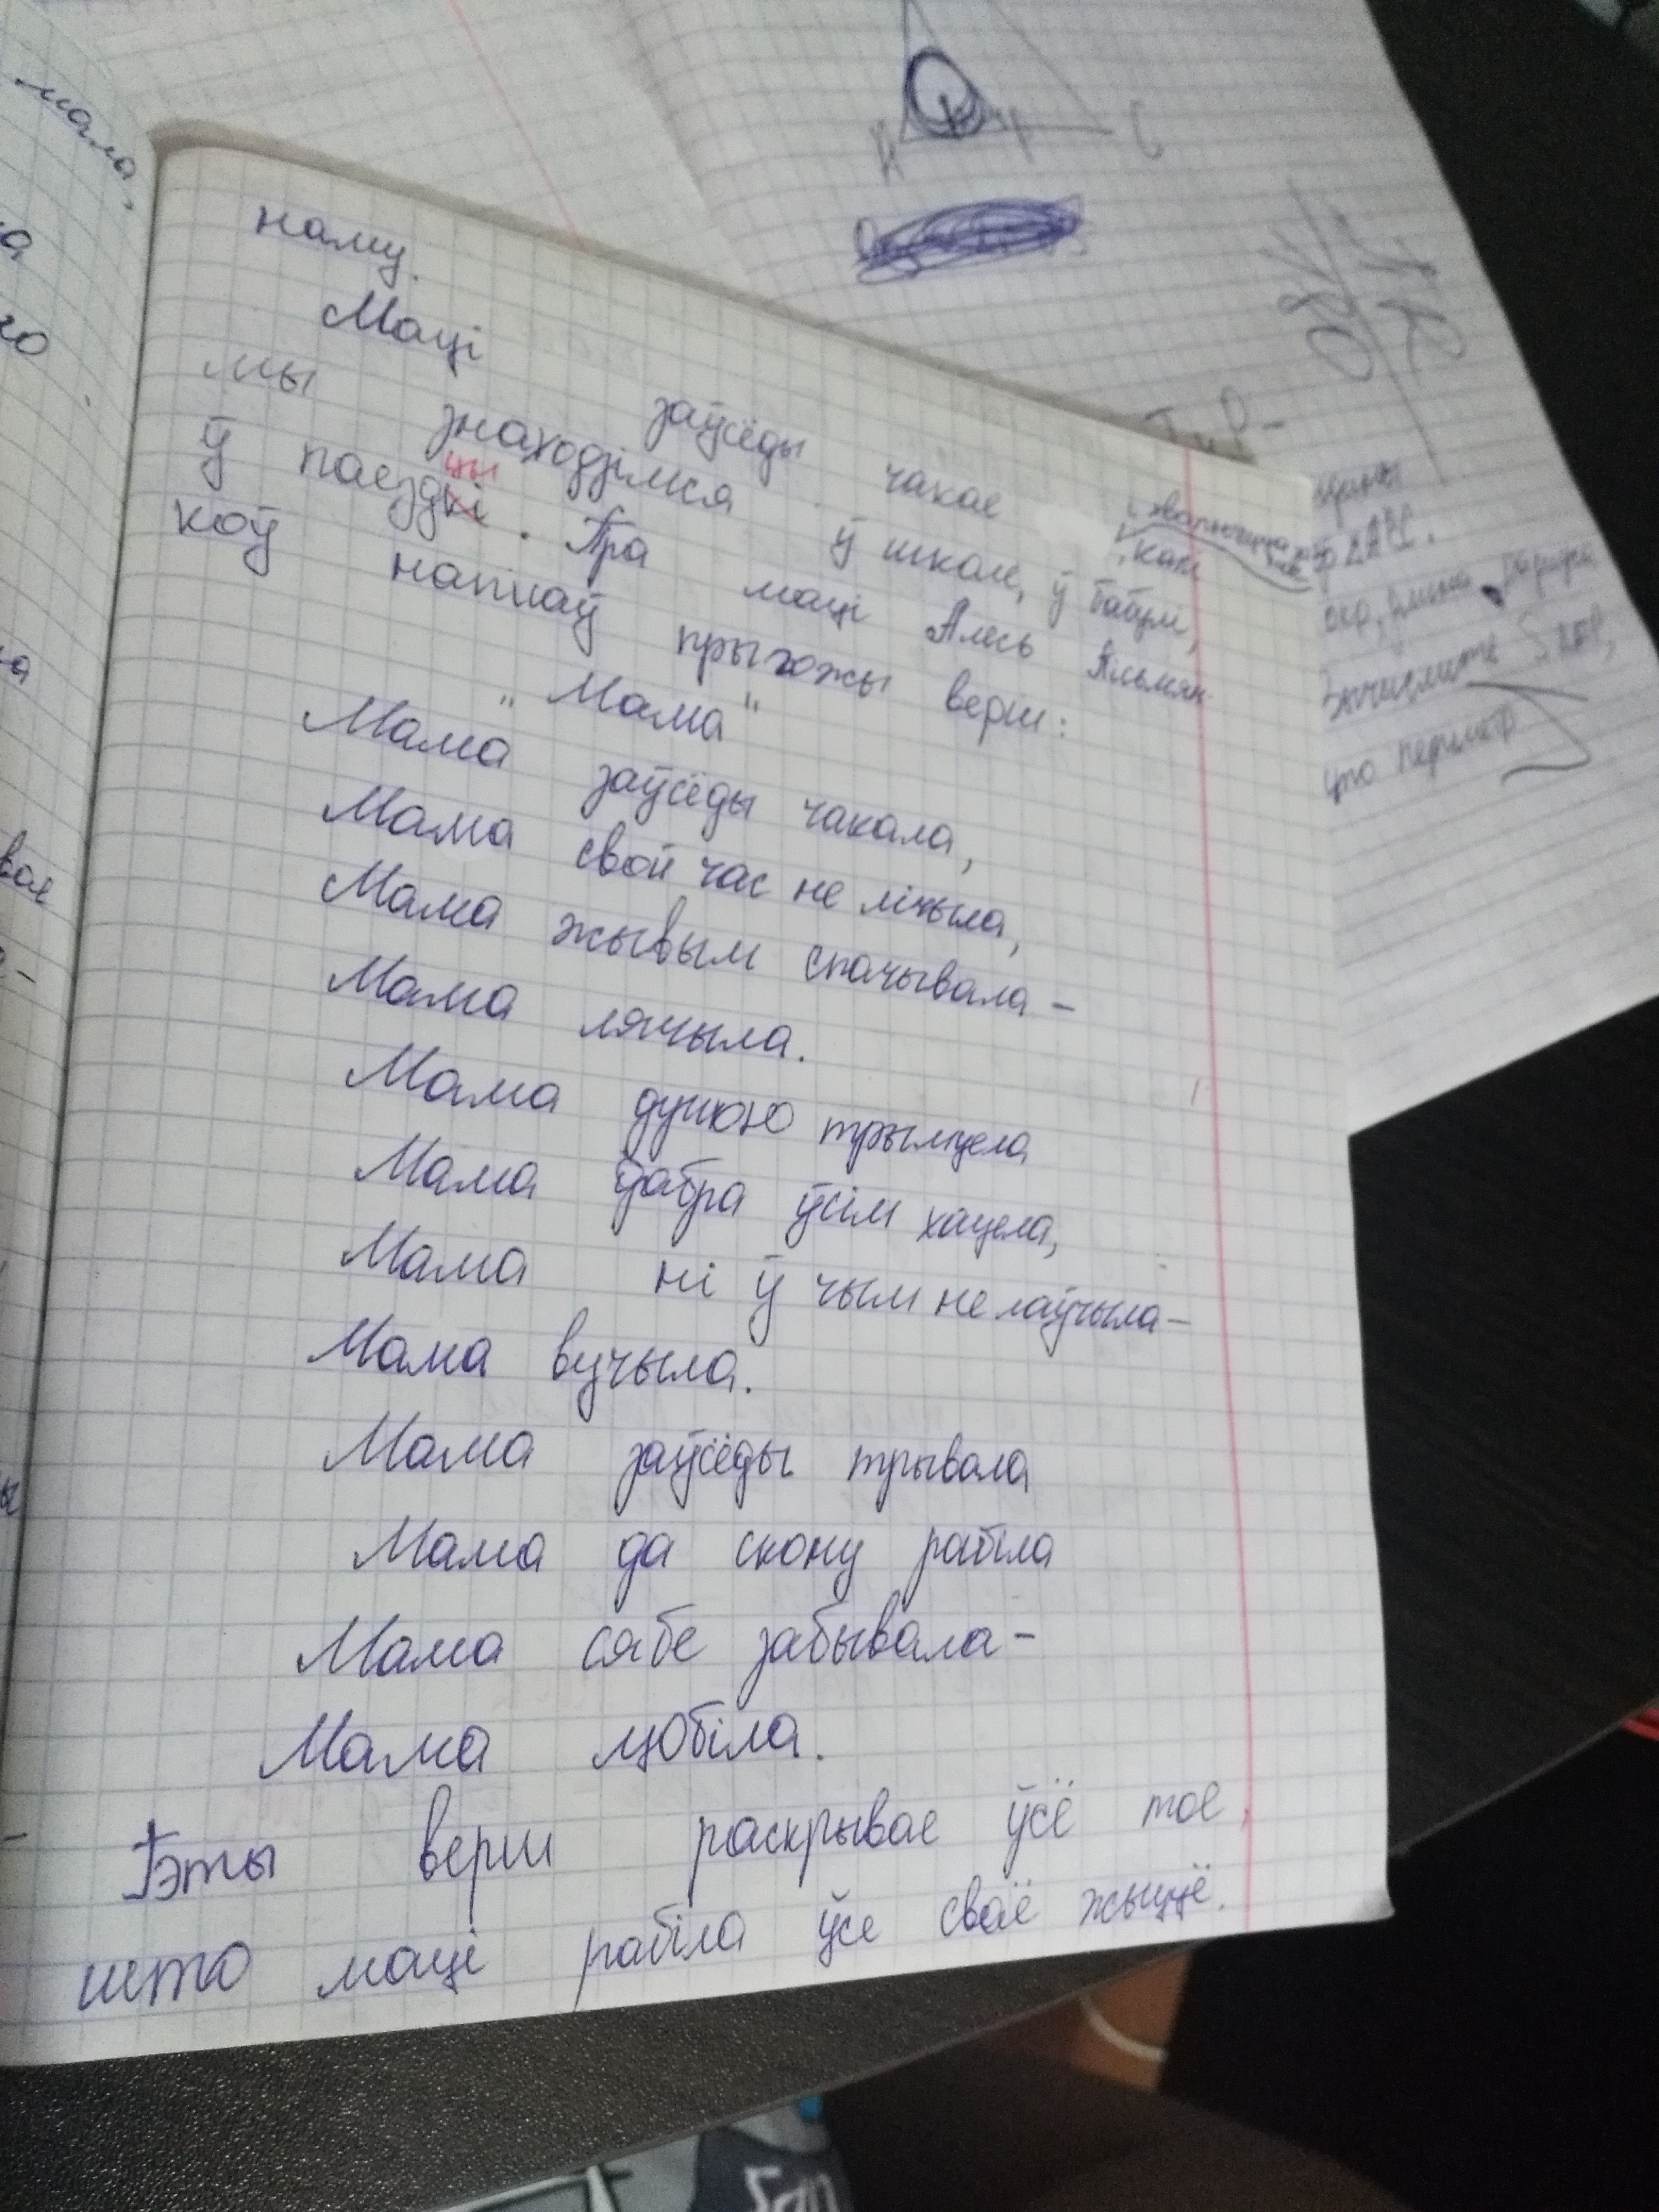 маła,
наму.
Маці заўсёды чакае, калі
мы знаходзімся ў школе, ў бабулі,
ў паездцы. Пра маці Алесь Альмян-
коў напісаў прыгожы верш:
„Мама"
Мама заўсёды чакала,
Мама свой час не лічыла,
Мама жывым спачывала –
Мама лячыла.
Мама душою трымцела
Мама дабра ўсім хацела,
Мама ні ў чым не лаўчыла –
Мама вучыла.
Мама заўсёды трывала
Мама да скону рабіла
Мама сябе забывала –
Мама любіла.
Гэты верш раскрывае ўсё тое,
што маці рабіла ўсе сваё жыццё.